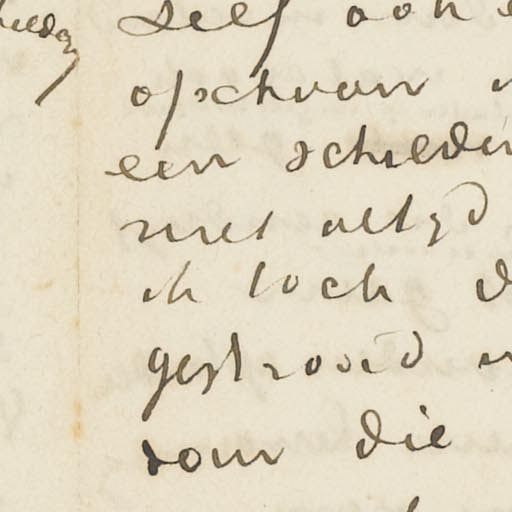 self ook
opschoon
een schilder
niet altyd
ik toch
gestrooid
voor die